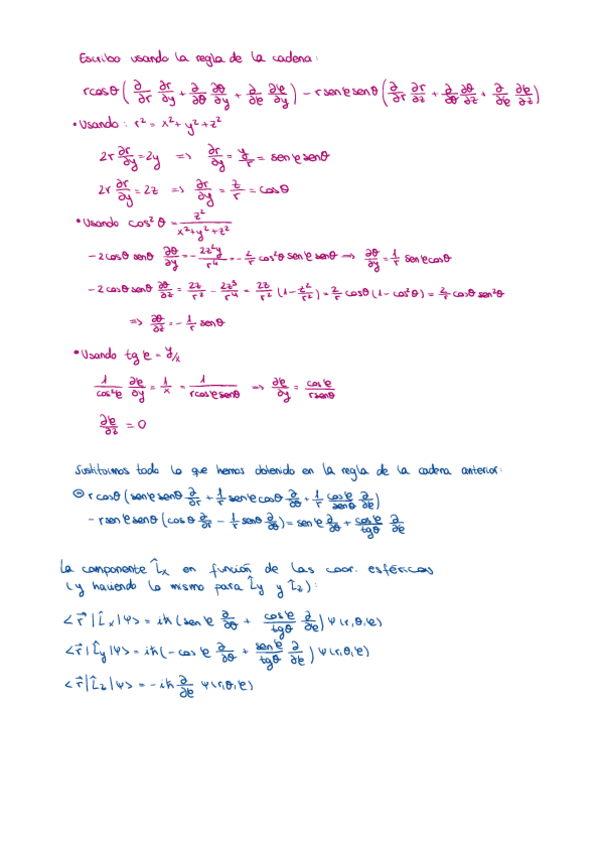 Escribo usando la regla de la cadena:
rcosθ (∂/∂r ∂r/∂y + ∂/∂θ ∂θ/∂y + ∂/∂φ ∂φ/∂y) - r senφ senθ (∂/∂r ∂r/∂z + ∂/∂θ ∂θ/∂z + ∂/∂φ ∂φ/∂z)
• Usando: r² = x² + y² + z²
2r ∂r/∂y = 2y => ∂r/∂y = y/r = senφ senθ
2r ∂r/∂y = 2z => ∂r/∂y = z/r = cosθ
• Usando cos²θ = z²/(x²+y²+z²)
-2cosθ senθ ∂θ/∂y = -2z²y/r⁴ = -2/r cos²θ senφ senθ => ∂θ/∂y = 1/r senφ cosθ
-2cosθ senθ ∂θ/∂z = 2z/r² - 2z³/r⁴ = 2z/r² (1 - z²/r²) = 2/r cosθ (1 - cos²θ) = 2/r cosθ sen²θ
=> ∂θ/∂z = -1/r senθ
• Usando tgφ = y/x
1/cos²φ ∂φ/∂y = 1/x = 1/(r cosφ senθ) => ∂φ/∂y = cosφ/(r senθ)
∂φ/∂z = 0
Sustituimos todo lo que hemos obtenido en la regla de la cadena anterior:
⊖ r cosθ (senφ senθ ∂/∂r + 1/r senφ cosθ ∂/∂θ + 1/r cosφ/senθ ∂/∂φ)
- r senφ senθ (cosθ ∂/∂r - 1/r senθ ∂/∂θ) = senφ ∂/∂θ + cosφ/tgθ ∂/∂φ
La componente L̂x en función de las coor. esféricas
(y haciendo lo mismo para L̂y y L̂z):
<r⃗|L̂x|ψ> = iħ (senφ ∂/∂θ + cosφ/tgθ ∂/∂φ) ψ(r,θ,φ)
<r⃗|L̂y|ψ> = iħ (-cosφ ∂/∂θ + senφ/tgθ ∂/∂φ) ψ(r,θ,φ)
<r⃗|L̂z|ψ> = -iħ ∂/∂φ ψ(r,θ,φ)